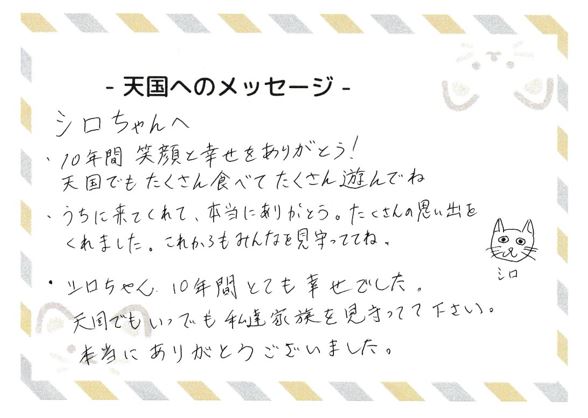 - 天国へのメッセージ -
シロちゃんへ
・10年間 笑顔と幸せをありがとう!
天国でも たくさん食べて たくさん遊んでね
・うちに来てくれて、本当にありがとう。たくさんの思い出を
くれました。これからもみんなを見守っててね。
シロ
・シロちゃん 10年間とても幸せでした。
天国でもいつでも私達家族を見守ってて下さい。
本当にありがとうございました。